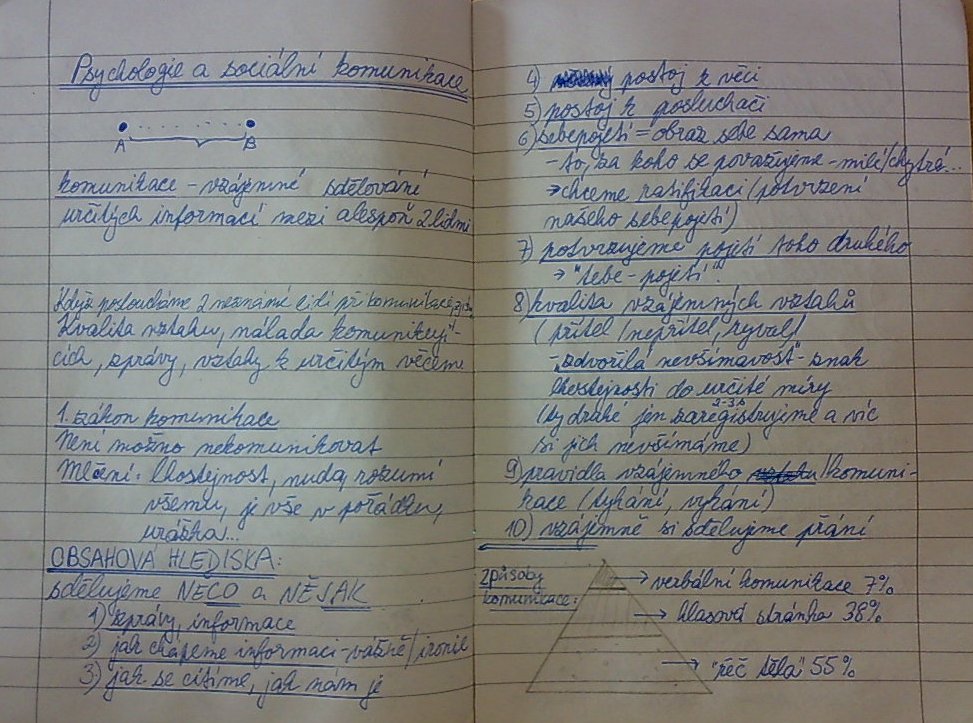 Psychologie a sociální komunikace
A B
komunikace - vzájemné sdělování
určitých informací mezi alespoň 2 lidmi
Když posloucháme 2 neznámé lidi při komunikaci,
kvalita vztahu, nálada komunikují-
cích, zprávy, vztahy k určitým věcem
1. zákon komunikace
Není možno nekomunikovat
Mlčení: lhostejnost, nuda, rozumí
všemu, je vše v pořádku,
urážka...
OBSAHOVÁ HLEDISKA:
sdělujeme NĚCO a NĚJAK
1) zprávy, informace
2) jak chápeme informaci - vážně/ironie
3) jak se cítíme, jak nám je
4) postoj k věci
5) postoj k posluchači
6) sebepojetí = obraz sebe sama
- to, za koho se považujeme - milé/chytré...
→ chceme ratifikaci (potvrzení
našeho sebepojetí)
7) potvrzujeme pojetí toho druhého
→ "tebe - pojetí".
8) kvalita vzájemných vztahů
(přítel/nepřítel, rival)
- "zdvořilá nevšímavost" - znak
lhostejnosti do určité míry
2-3 s
(ty druhé jen zaregistrujeme a víc
si jich nevšímáme)
9) pravidla vzájemného /komuni-
kace (tykání, vykání)
10) vzájemně si sdělujeme přání
způsoby
komunikace:
→ verbální komunikace 7%
→ hlasová stránka 38%
→ "řeč těla" 55%